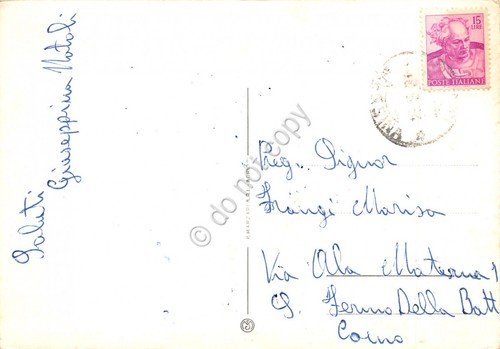 Saluti
Giuseppina Natali
15
LIRE
POSTE ITALIANE
Preg. Signor
Frangi Marisa
Via Ala Materna 1
S. Fermo Della Batt
Como
do not copy